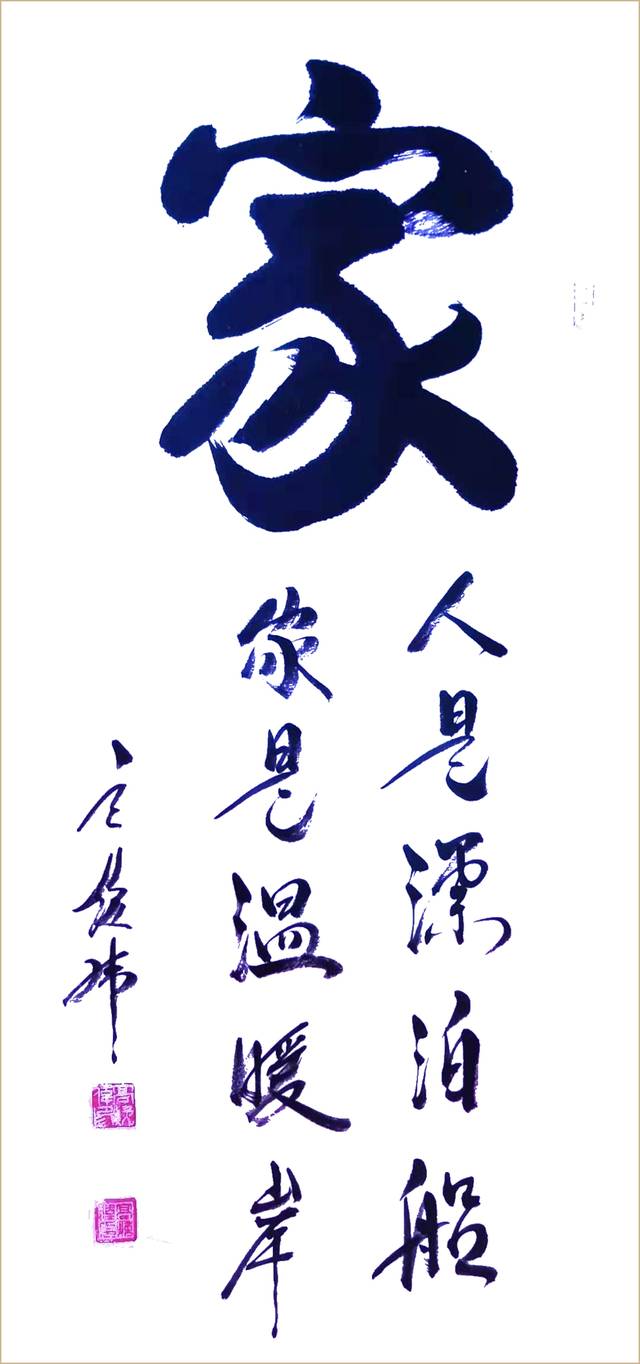 家
人是漂泊船
家是温暖岸